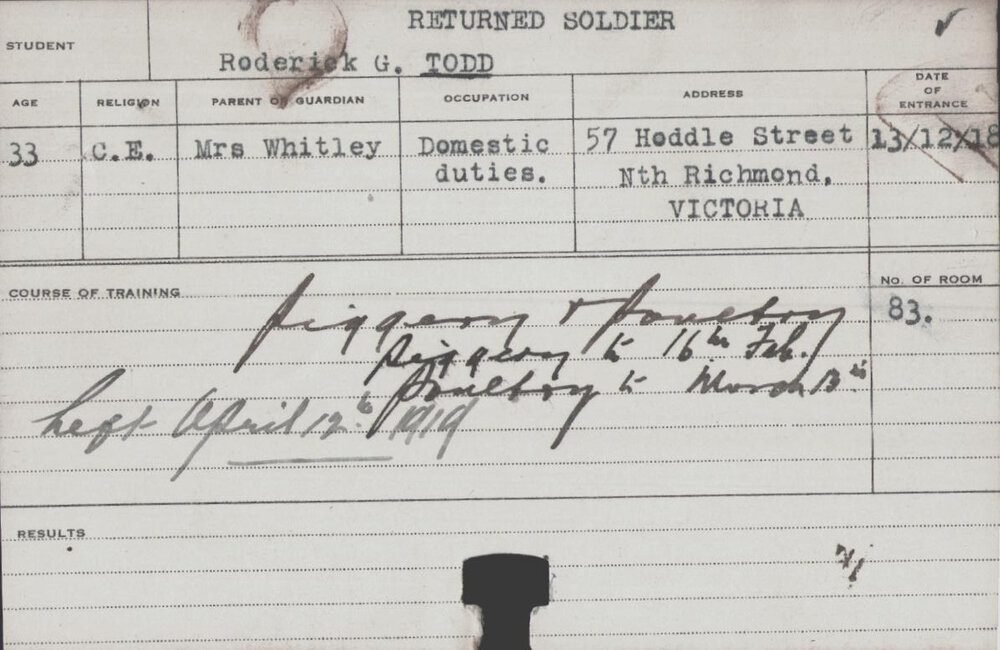 RETURNED SOLDIER
STUDENT
Roderick G. TODD
AGE
RELIGION
PARENT OR GUARDIAN
OCCUPATION
ADDRESS
DATE OF ENTRANCE
33
C.E.
Mrs Whitley
Domestic duties.
57 Hoddle Street
Nth Richmond,
VICTORIA
13/12/18
COURSE OF TRAINING
No. OF ROOM
83.
Piggery & Poultry
Piggery to 16th Feb.
Poultry to March 13th
Left April 12th 1919
RESULTS